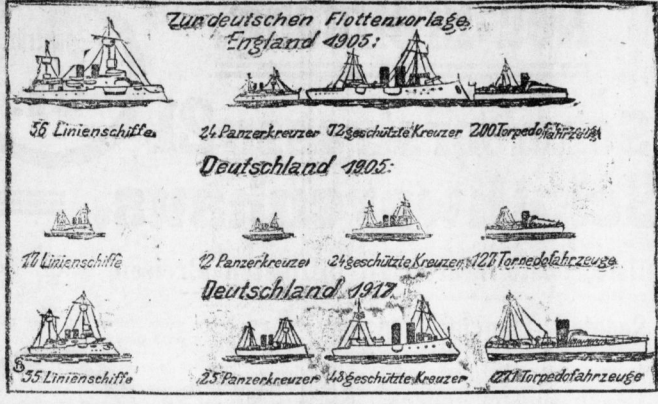 Zur deutschen Flottenvorlage.
England 1905:
Linienschiffe 24 Panzerkreuzer 72 geschützte Kreuzer 200 Torpedofahrzeuge
Deutschland 1905:
Linienschiffe 12 Panzerkreuzer 24 geschützte Kreuzer Torpedofahrzeuge
Deutschland 1917.
35 Linienschiffe 25 Panzerkreuzer 48 geschützte Kreuzer 271 Torpedofahrzeuge